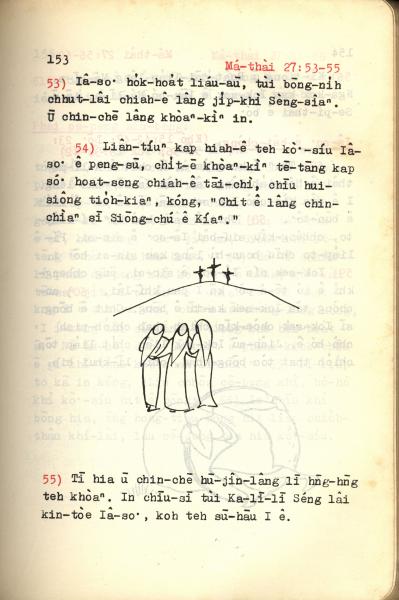 153
Má-thài 27:53-55
53) Iâ-so͘ ho̍k-hoa̍t liáu-āu, tùi bōng-nih
chhut-lâi chiah-ê lâng ji̍p-khì Sèng-siaⁿ.
Ū chin-chē lâng khòaⁿ-kìⁿ in.
54) Liân-tíuⁿ kap hiah-ê teh kò͘-síu Iâ-
so͘ ê peng-sū, chi̍t-ē khòaⁿ-kìⁿ tē-tāng kap
só͘ hoat-seng chiah-ê tāi-chì, chīu hui-
siông tio̍h-kiaⁿ, kóng, "Chit ê lâng chin-
chiàⁿ sī Siōng-chú ê Kíaⁿ."
55) Tī hia ū chin-chē hū-jîn-lâng lī hn̄g-hn̄g
teh khòaⁿ. In chīu-sī tùi Ka-lī-lī Séng lâi
kin-tòe Iâ-so͘, koh teh sū-hāu I ê.